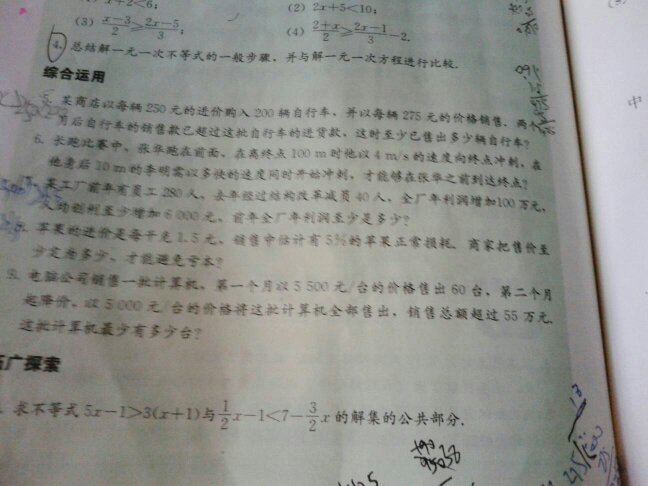 (1) x+2<6; (2) 2x+5<10;
(3) x-3/2≥2x-5/3; (4) 2+x/2≥2x-1/3-2.
4. 总结解一元一次不等式的一般步骤，并与解一元一次方程进行比较.
综合运用
某商店以每辆250元的进价购入200辆自行车，并以每辆275元的价格销售. 两个
月后自行车的销售款已超过这批自行车的进货款，这时至少已售出多少辆自行车?
6. 长跑比赛中，张华跑在前面，在离终点100 m时他以4 m/s的速度向终点冲刺，在
他身后10 m的李明需以多快的速度同时开始冲刺，才能够在张华之前到达终点?
某工厂前年有员工280人，去年经过结构改革减员40人，全厂年利润增加100万元，
人均创利至少增加6 000元，前年全厂年利润至少是多少?
苹果的进价是每千克1.5元，销售中估计有5%的苹果正常损耗. 商家把售价至
少定为多少，才能避免亏本?
9. 电脑公司销售一批计算机，第一个月以5 500元/台的价格售出60台，第二个月
起降价，以5 000元/台的价格将这批计算机全部售出，销售总额超过55万元.
这批计算机最少有多少台?
拓广探索
求不等式5x-1>3(x+1)与1/2x-1<7-3/2x的解集的公共部分.